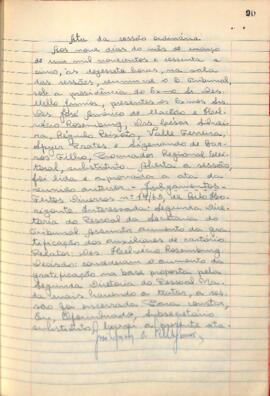 20
Ata da sessão ordinária
Aos nove dias do mês de março
de um mil novecentos e sessenta e
cinco, às dezessete horas, na sala
das sessões, reuniu-se o E. Tribunal,
sob a presidência do Exmo Sr Des.
Mello Júnior, presentes os Exmos Srs.
Des. José Américo de Macêdo e
Rosenburg, Drs. Cesar Silvei
ra, Régulo Peixoto, Valle Ferreira,
Spyer Prates e Sigismundo de Bar
ros Filho, Procurador Regional Elei
toral, substituto. Aberta a sessão
foi lida e aprovada a ata da
reunião anterior. - Julgamentos -
Feitos Diversos nº 14/65, de Belo Ho
rizonte. Interessada: Segunda Dire
toria do Pessoal da Secretaria do
Tribunal. Assunto: aumento da gra
tificação dos auxiliares de cartório.
Relator: Des. Rosenburg.
Decisão: concederam o aumento da
gratificação na base proposta pela
Segunda Diretoria do Pessoal. Na
da mais havendo a tratar, a ses
são foi encerrada. Para constar,
Eu, Subsecretário
substituto, lavrei a presente ata.